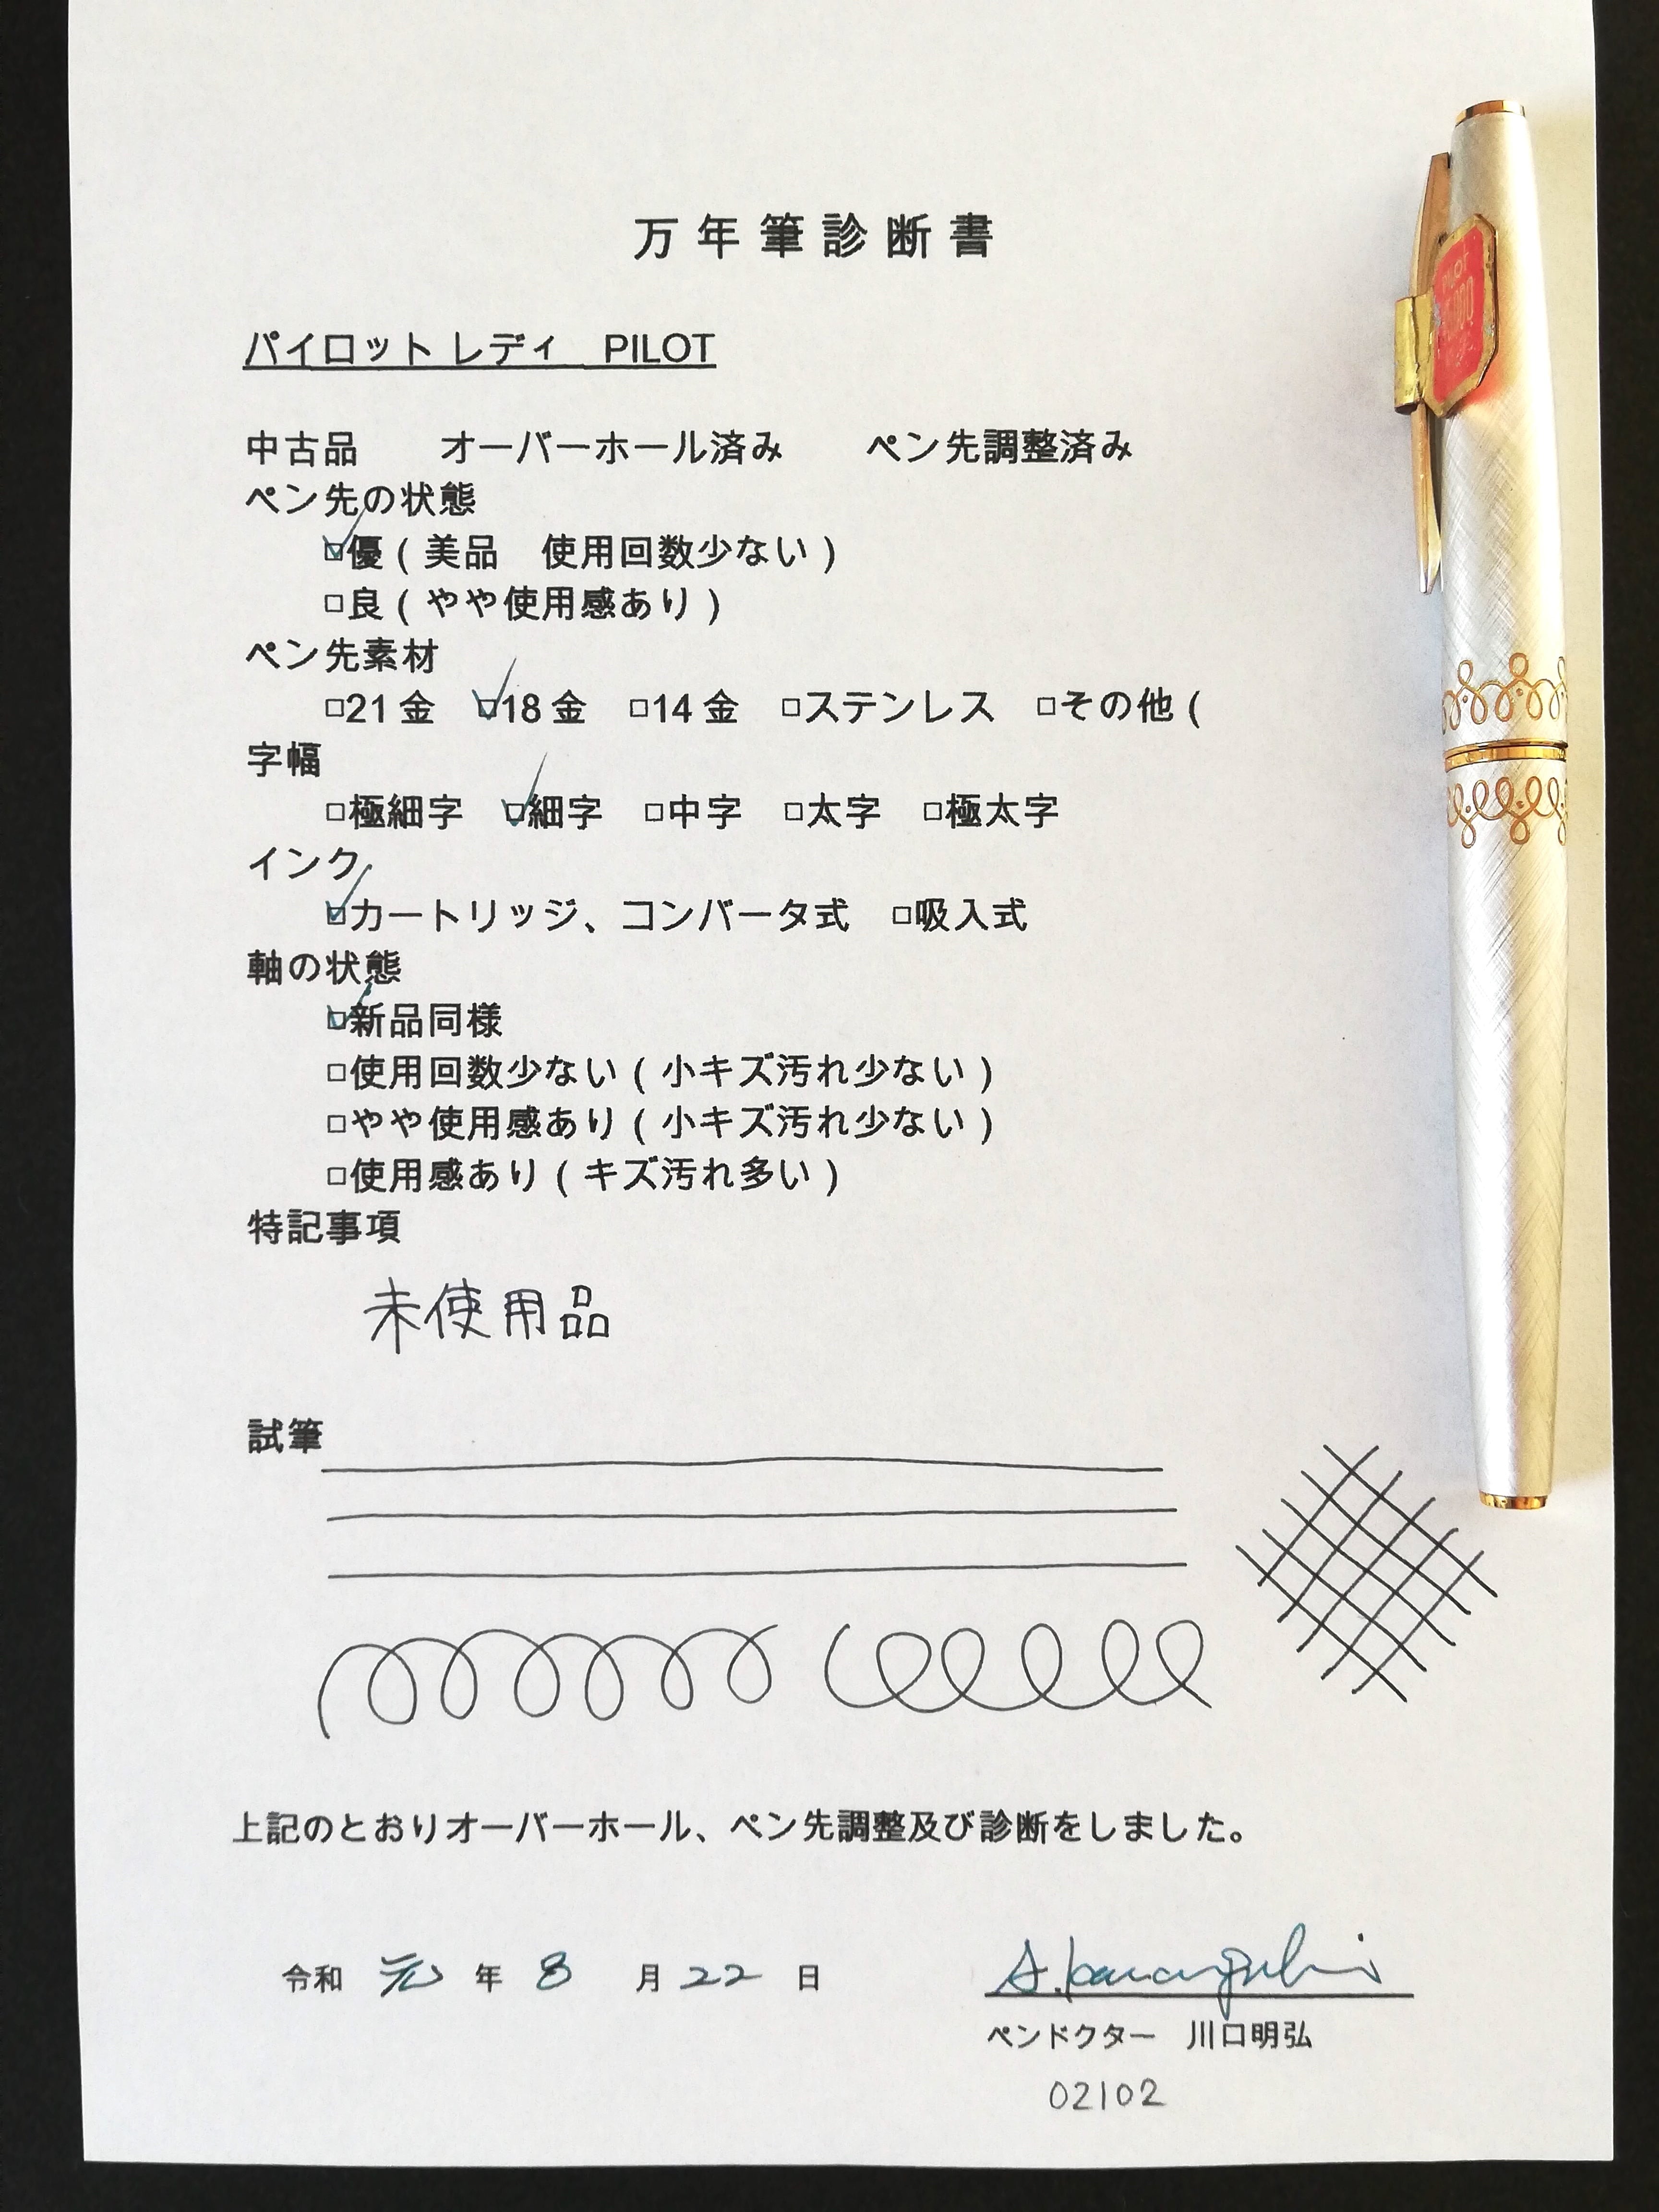 万年筆診断書
パイロット レディ　PILOT
中古品　　オーバーホール済み　　ペン先調整済み
ペン先の状態
☑優(美品　使用回数少ない)
□良(やや使用感あり)
ペン先素材
□21金　☑18金　□14金　□ステンレス　□その他(
字幅
□極細字　☑細字　□中字　□太字　□極太字
インク
☑カートリッジ、コンバータ式　□吸入式
軸の状態
☑新品同様
□使用回数少ない(小キズ汚れ少ない)
□やや使用感あり(小キズ汚れ少ない)
□使用感あり(キズ汚れ多い)
特記事項
未使用品
試筆
上記のとおりオーバーホール、ペン先調整及び診断をしました。
令和 元 年 8 月 22 日
A.Kawaguchi
ペンドクター　川口明弘
02102
PILOT